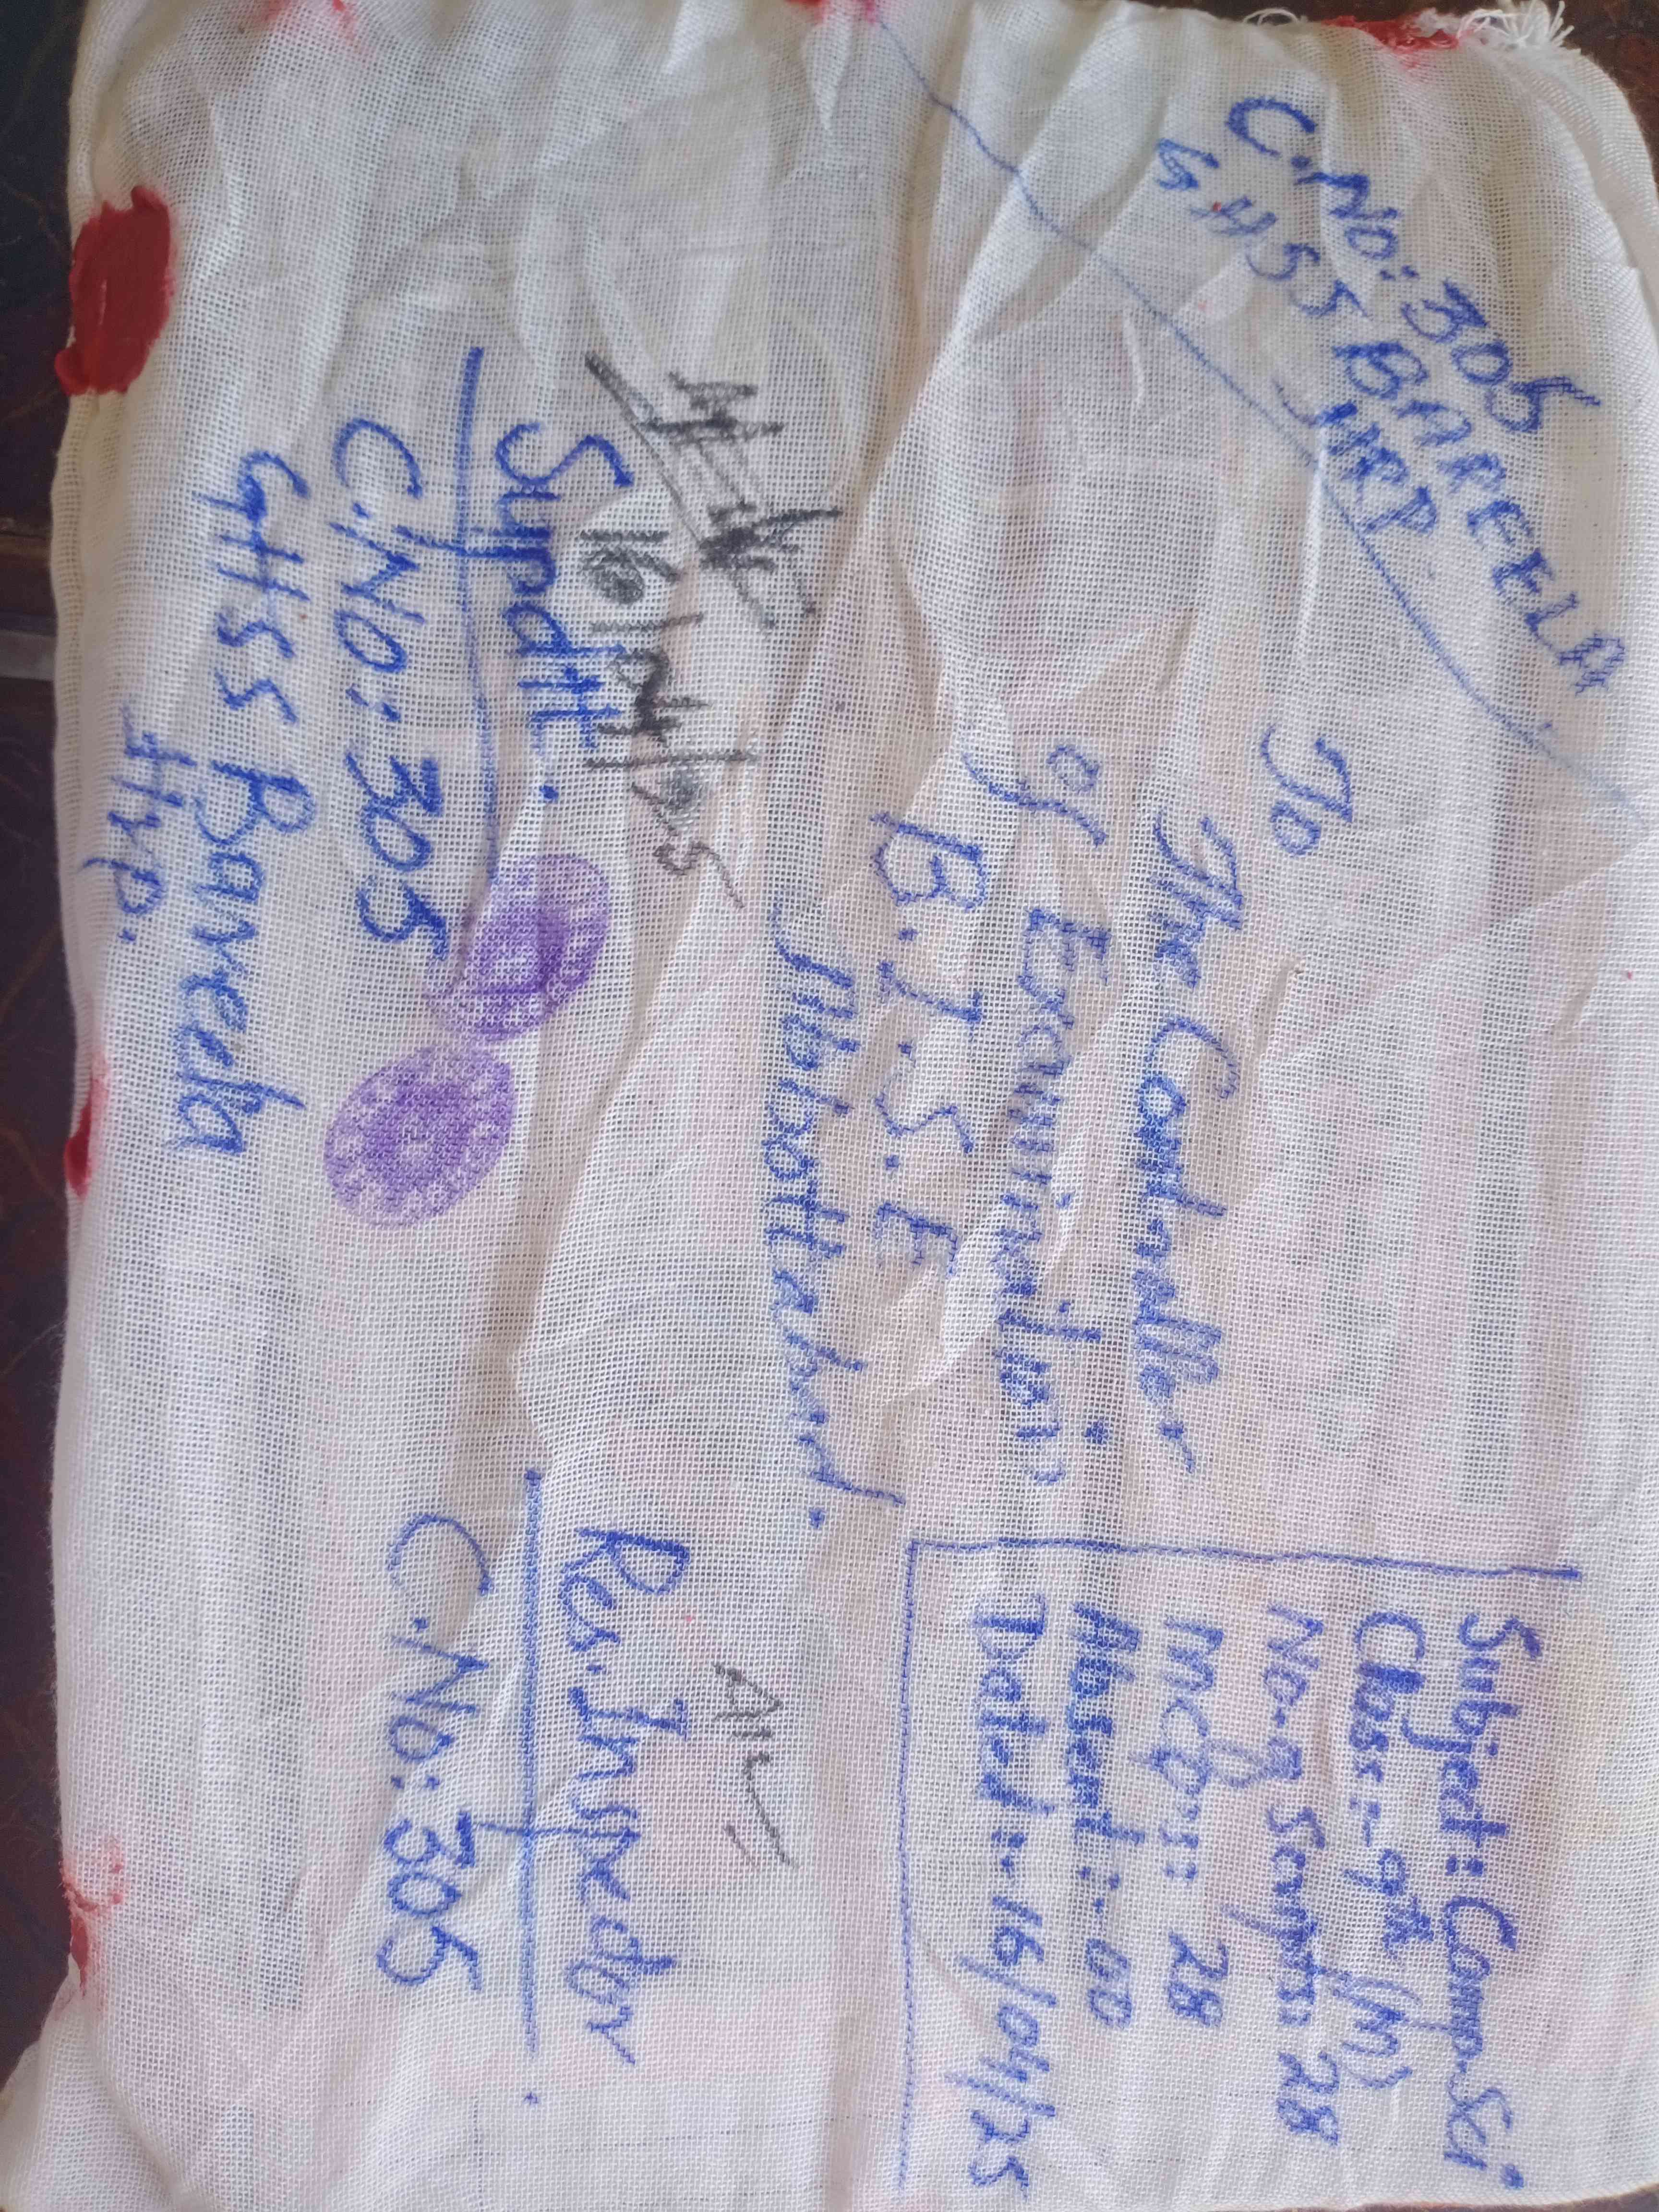 C.No: 305
GHSS BAREELA
HRP
To
The Controller
of Examination
B.I.S.E
Abbottabad.
Subject: Comp.Sci
Class:- 9th (M)
No-of Scripts: 28
MCQs: 28
Absent:- 00
Dated:- 16/04/25
16/04/25
Supdtt.
C.NO: 305
GHSS Bareela
Hrp.
Re. Inspector
C.No: 305